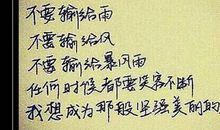 不要输给雨
不要输给风
不要输给暴风雨
任何时候都要笑容不断
我想成为那般坚强美丽的